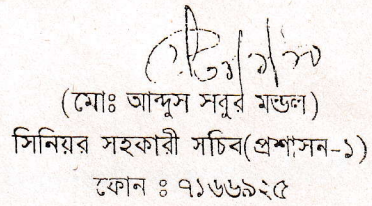 (মোঃ আব্দুস সবুর মন্ডল)
সিনিয়র সহকারী সচিব(প্রশাসন-১)
ফোন ঃ ৭১৬৬৯২৫